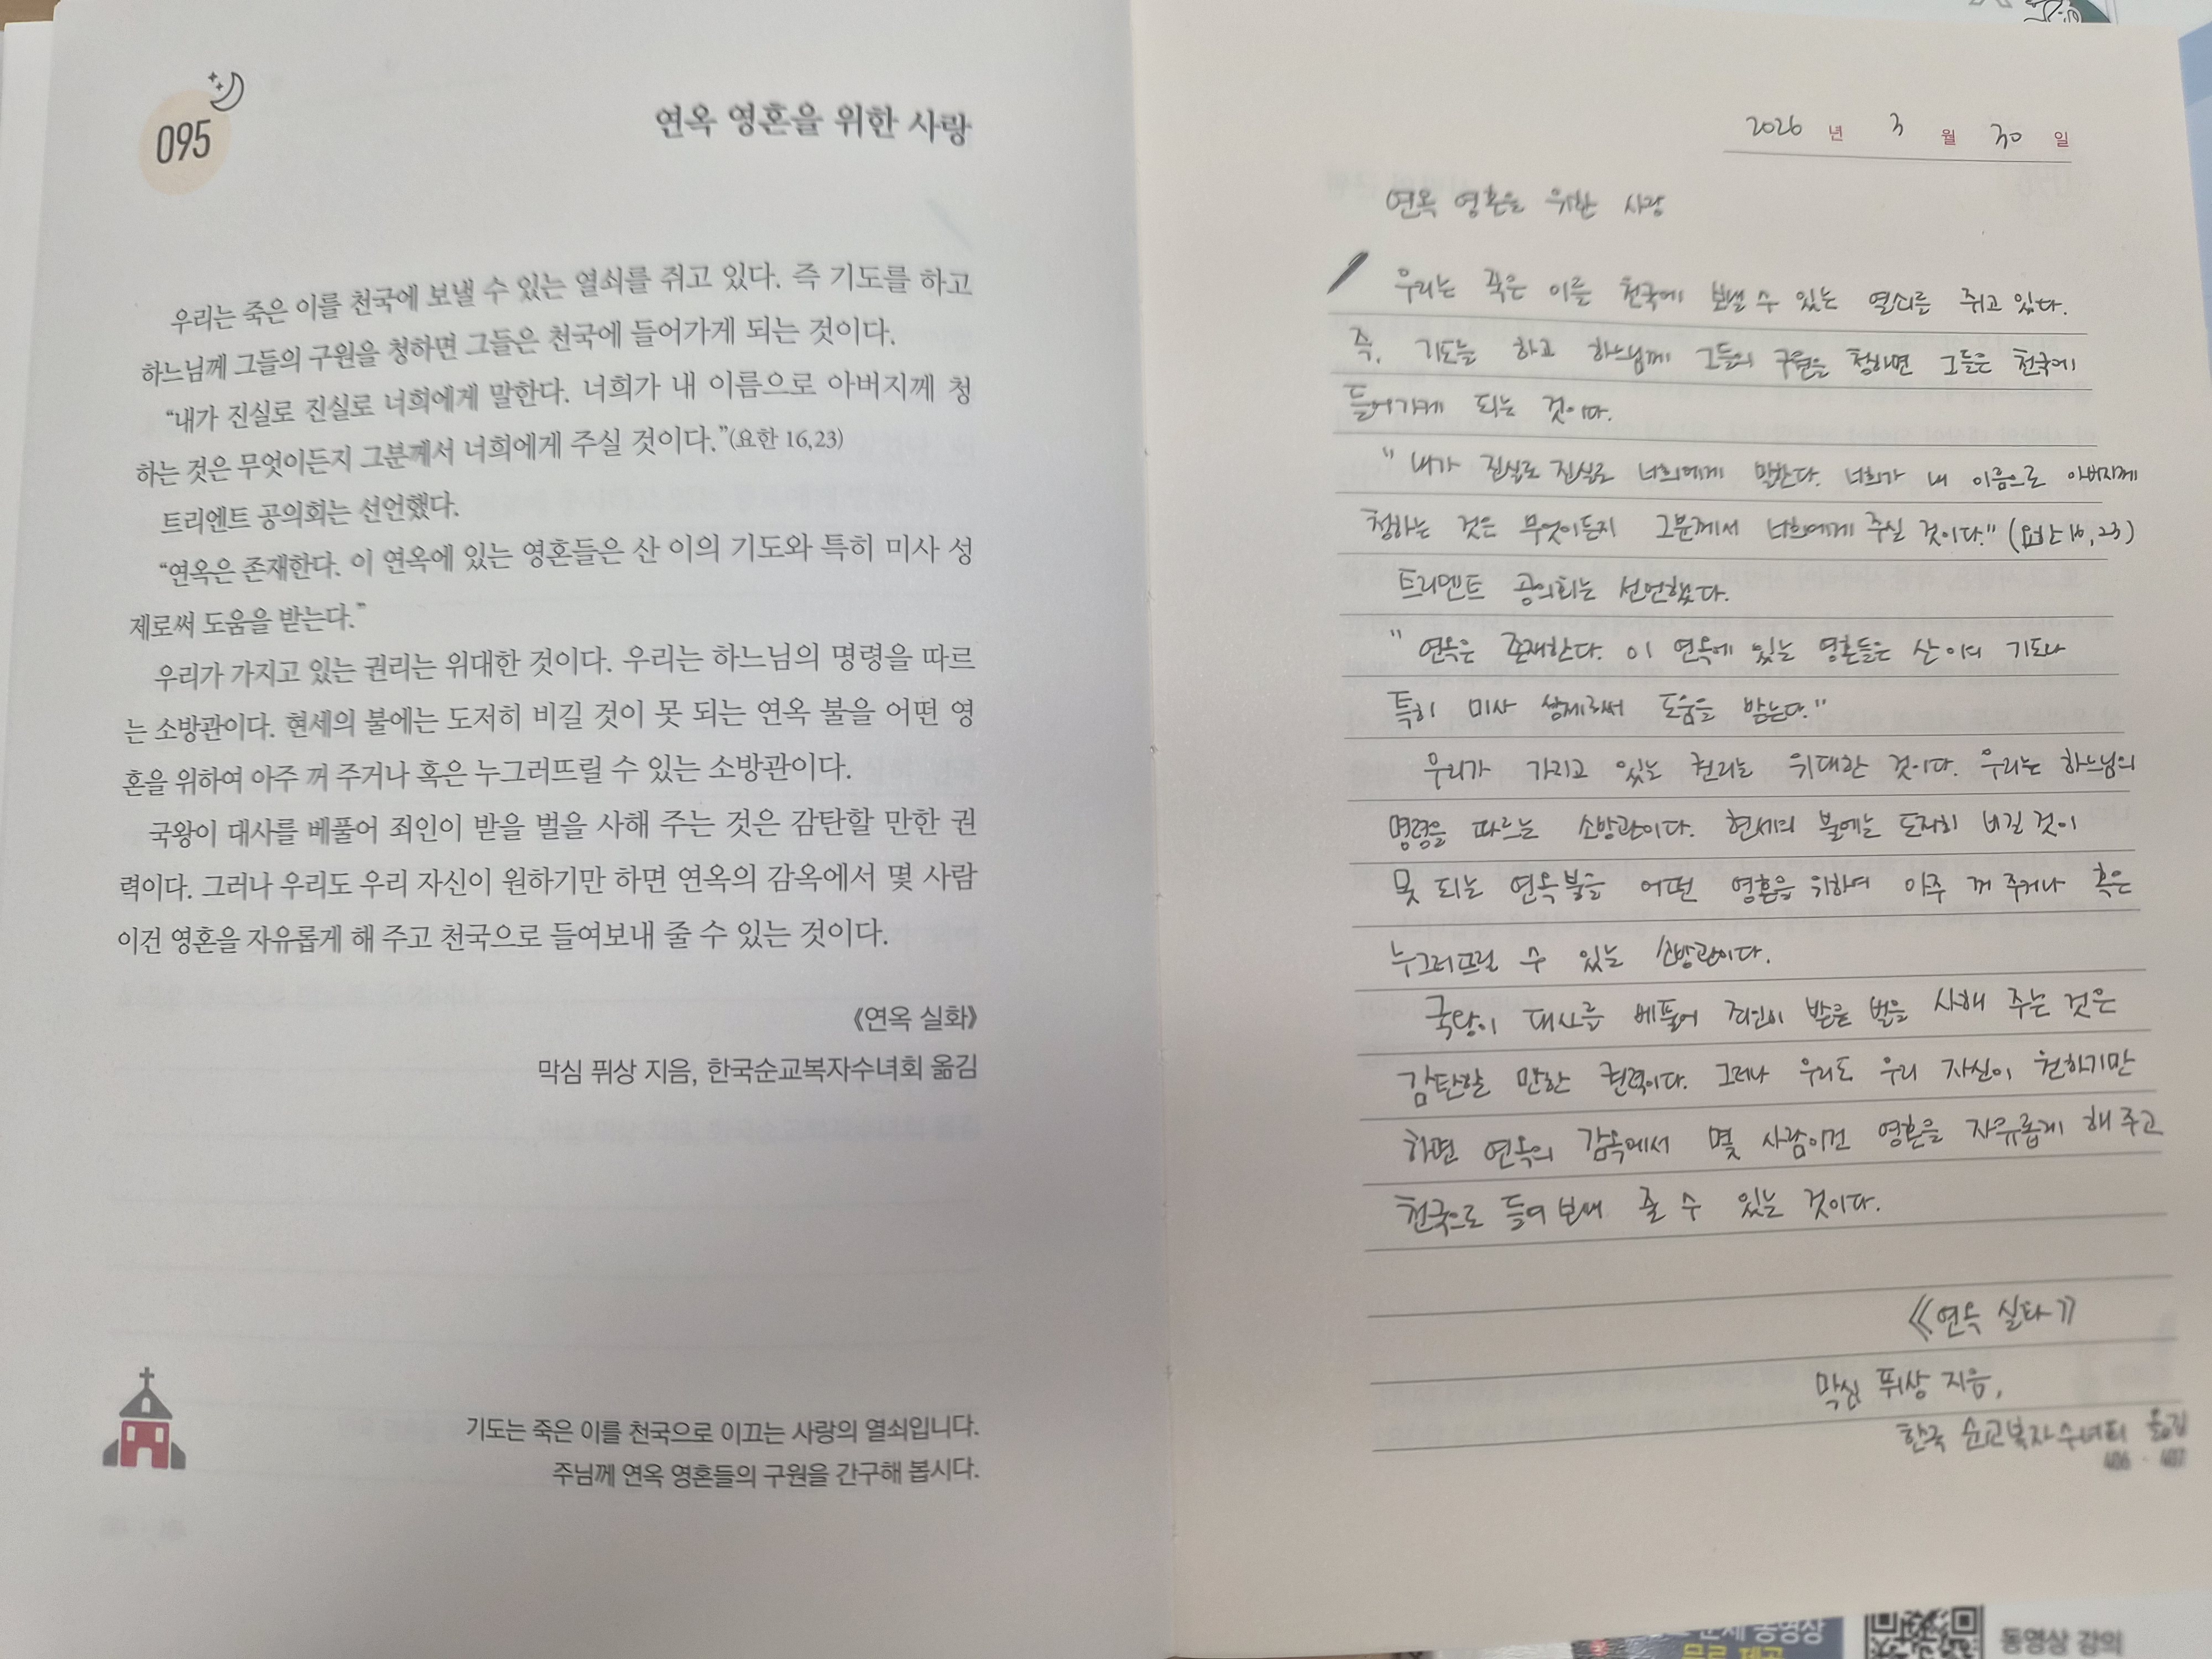 095
연옥 영혼을 위한 사랑
우리는 죽은 이를 천국에 보낼 수 있는 열쇠를 쥐고 있다. 즉 기도를 하고
하느님께 그들의 구원을 청하면 그들은 천국에 들어가게 되는 것이다.
“내가 진실로 진실로 너희에게 말한다. 너희가 내 이름으로 아버지께 청
하는 것은 무엇이든지 그분께서 너희에게 주실 것이다.”(요한 16,23)
트리엔트 공의회는 선언했다.
“연옥은 존재한다. 이 연옥에 있는 영혼들은 산 이의 기도와 특히 미사 성
제로써 도움을 받는다.”
우리가 가지고 있는 권리는 위대한 것이다. 우리는 하느님의 명령을 따르
는 소방관이다. 현세의 불에는 도저히 비길 것이 못 되는 연옥 불을 어떤 영
혼을 위하여 아주 꺼 주거나 혹은 누그러뜨릴 수 있는 소방관이다.
국왕이 대사를 베풀어 죄인이 받을 벌을 사해 주는 것은 감탄할 만한 권
력이다. 그러나 우리도 우리 자신이 원하기만 하면 연옥의 감옥에서 몇 사람
이건 영혼을 자유롭게 해 주고 천국으로 들여보내 줄 수 있는 것이다.
《연옥 실화》
막심 퓌상 지음, 한국순교복자수녀회 옮김
기도는 죽은 이를 천국으로 이끄는 사랑의 열쇠입니다.
주님께 연옥 영혼들의 구원을 간구해 봅시다.
2026 년 3 월 30 일
연옥 영혼을 위한 사랑
우리는 죽은 이를 천국에 보낼 수 있는 열쇠를 쥐고 있다.
즉, 기도를 하고 하느님께 그들의 구원을 청하면 그들은 천국에
들어가게 되는 것이다.
" 내가 진실로 진실로 너희에게 말한다. 너희가 내 이름으로 아버지께
청하는 것은 무엇이든지 그분께서 너희에게 주실 것이다." (요한 16,23)
트리엔트 공의회는 선언했다.
" 연옥은 존재한다. 이 연옥에 있는 영혼들은 산 이의 기도나
특히 미사 성제로써 도움을 받는다."
우리가 가지고 있는 권리는 위대한 것이다. 우리는 하느님의
명령을 따르는 소방관이다. 현세의 불에는 도저히 비길 것이
못 되는 연옥 불을 어떤 영혼을 위하여 아주 꺼 주거나 혹은
누그러뜨릴 수 있는 소방관이다.
국왕이 대사를 베풀어 죄인이 받을 벌을 사해 주는 것은
감탄할 만한 권력이다. 그러나 우리도 우리 자신이 원하기만
하면 연옥의 감옥에서 몇 사람이건 영혼을 자유롭게 해 주고
천국으로 들여보내 줄 수 있는 것이다.
《연옥 실화》
막심 퓌상 지음,
한국 순교복자수녀회 옮김
406 · 407
동영상
무료 제공
동영상 강의